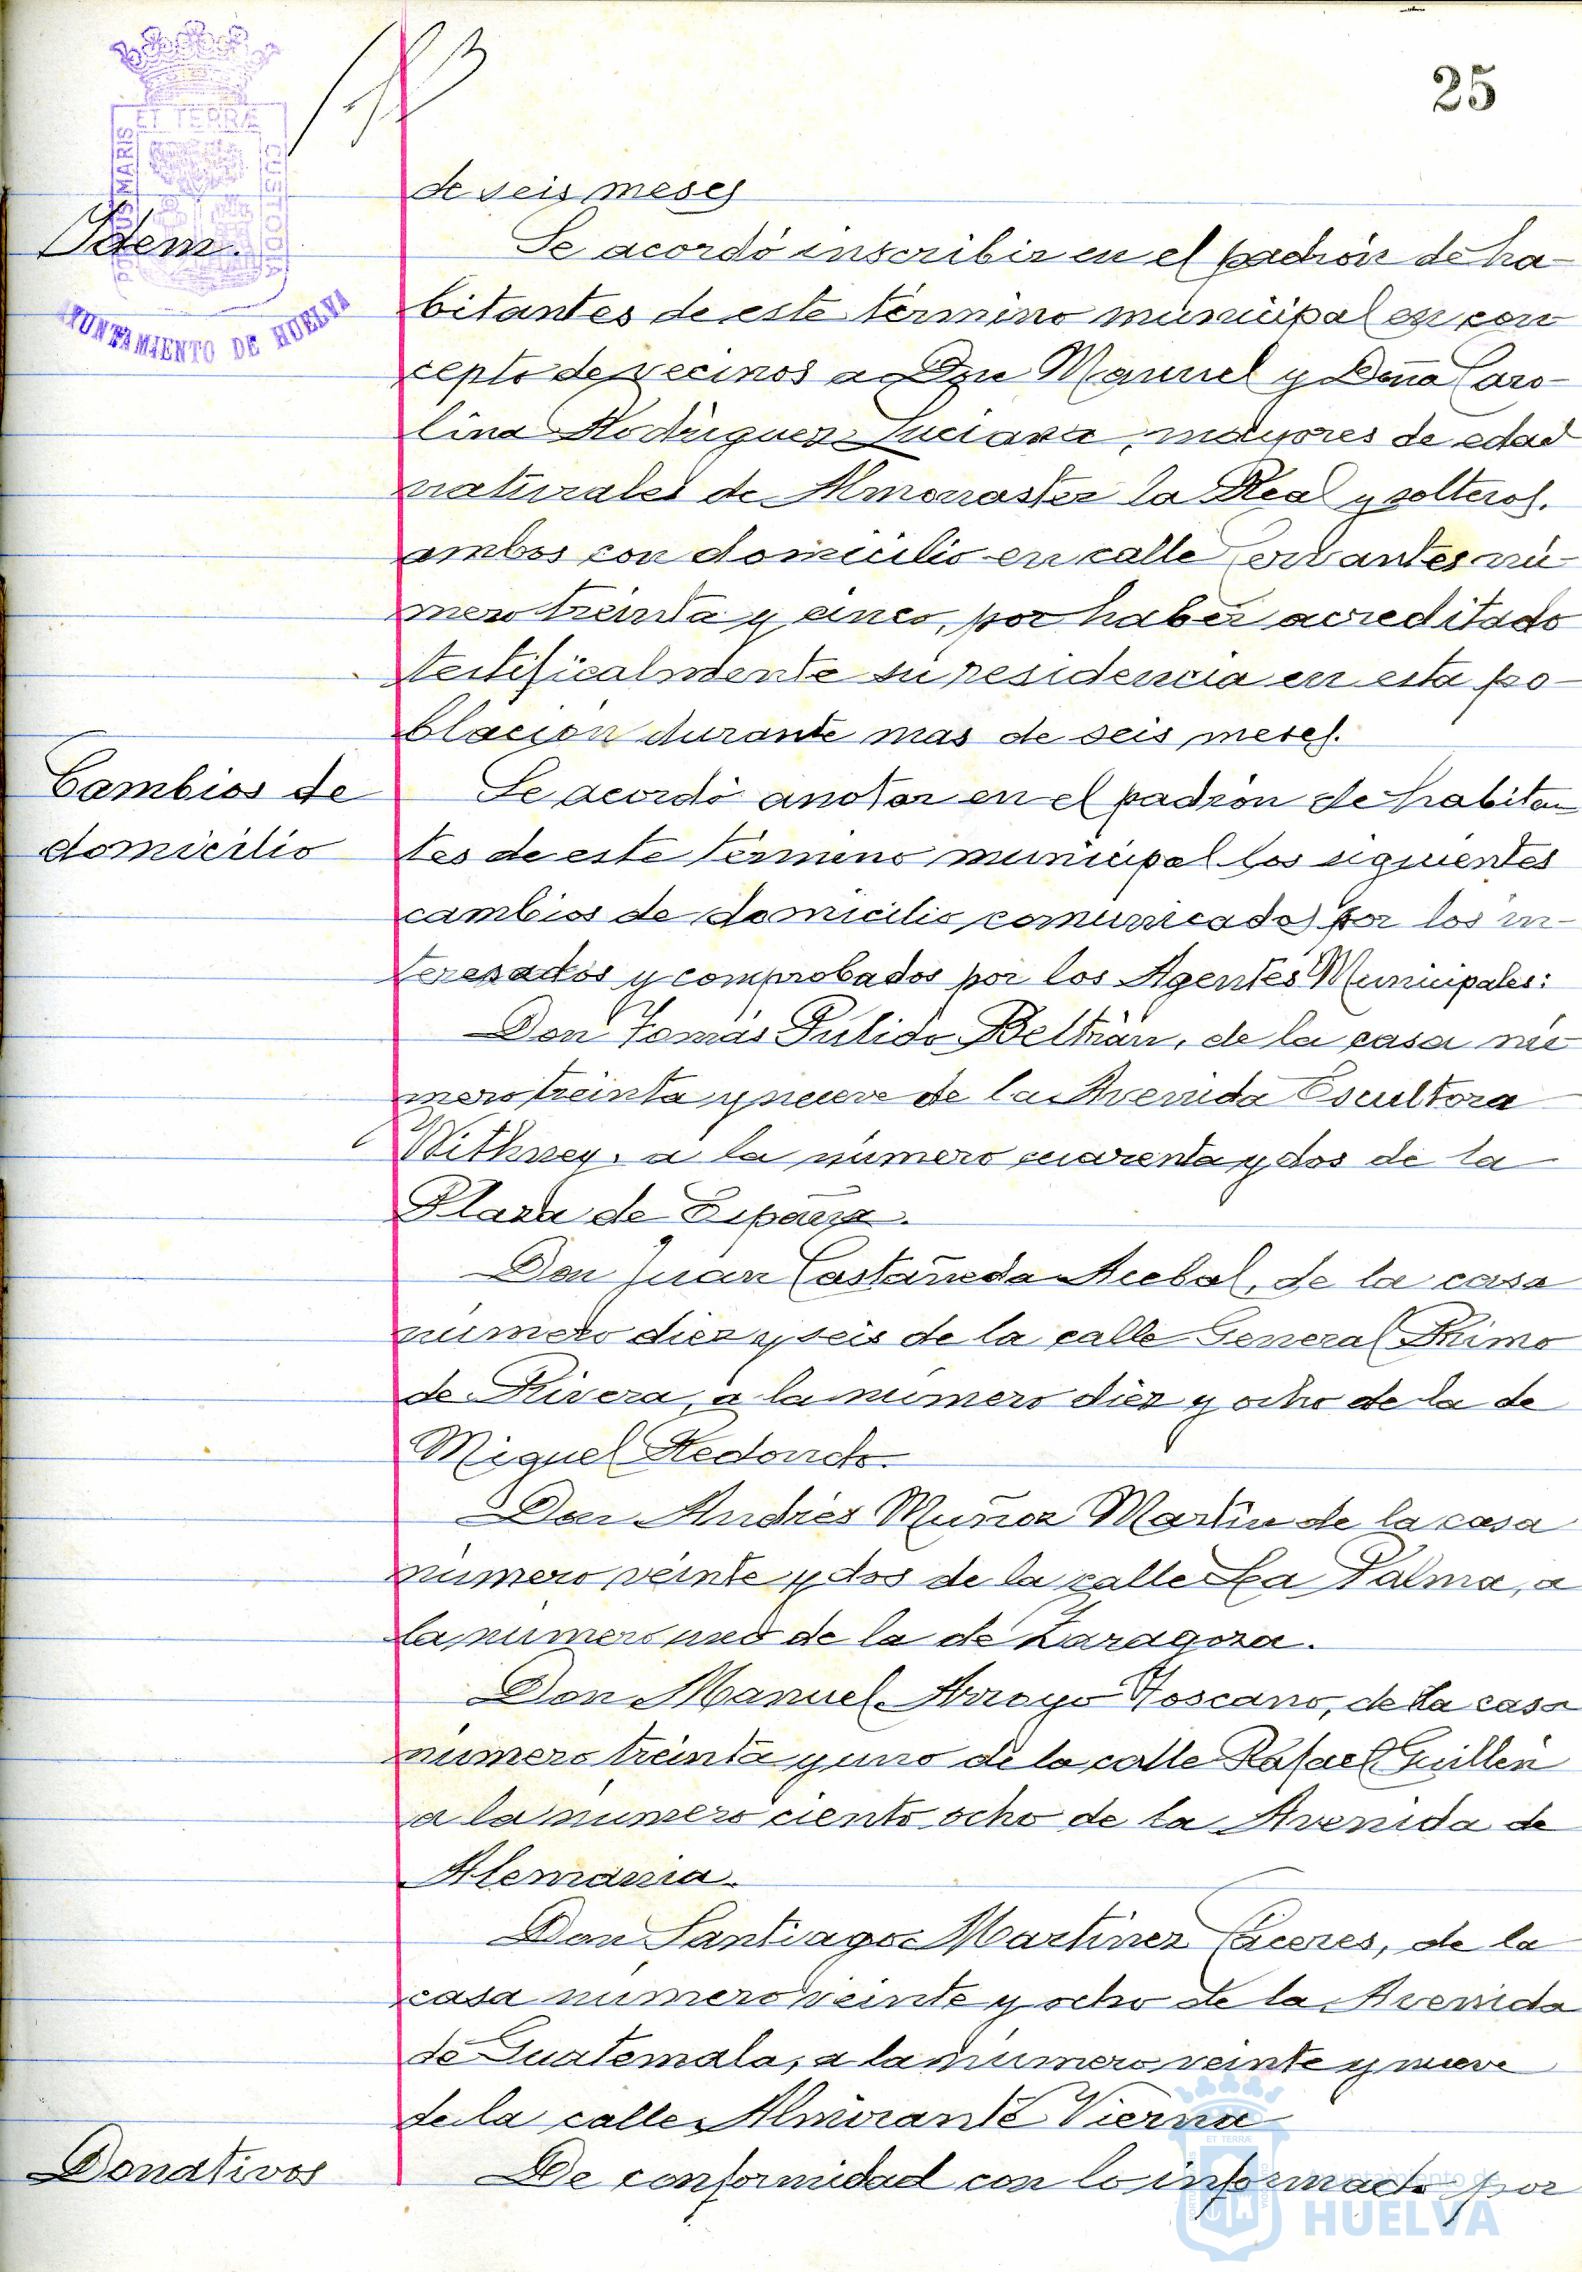 25
de seis meses
Idem.
Se acordó inscribir en el padrón de ha-
bitantes de este término municipal en con
cepto de vecinos a Don Manuel y Doña Caro-
lina Rodríguez Luciana, mayores de edad
naturales de Almonaster la Real y solteros.
ambos con domicilio en calle Cervantes nú-
mero treinta y cinco, por haber acreditado
testificalmente su residencia en esta po-
blación durante mas de seis meses.
Cambios de
domicilio
Se acordó anotar en el padrón de habitan
tes de este término municipal los siguientes
cambios de domicilio comunicados por los in-
teresados y comprobados por los Agentes Municipales:
Don Tomás Pulido Beltrán, de la casa nú
mero treinta y nueve de la Avenida Escultora
Withney, a la número cuarenta y dos de la
Plaza de España.
Don Juan Castañeda Acebal, de la casa
número diez y seis de la calle General Primo
de Rivera, a la número diez y ocho de la de
Miguel Redondo.
Don Andrés Muñoz Martín de la casa
número veinte y dos de la calle La Palma, a
la número uno de la de Zaragoza.
Don Manuel Arroyo Toscano, de la casa
número treinta y uno de la calle Rafael Guillén
a la número ciento ocho de la Avenida de
Alemania.
Don Santiago Martínez Cáceres, de la
casa número veinte y ocho de la Avenida
de Guatemala, a la número veinte y nueve
de la calle Almirante Vierna
Donativos
De conformidad con lo informado por
ET TERRÆ
MARIS
CUSTODIA
AYUNTAMIENTO DE HUELVA
Ayuntamiento de
HUELVA